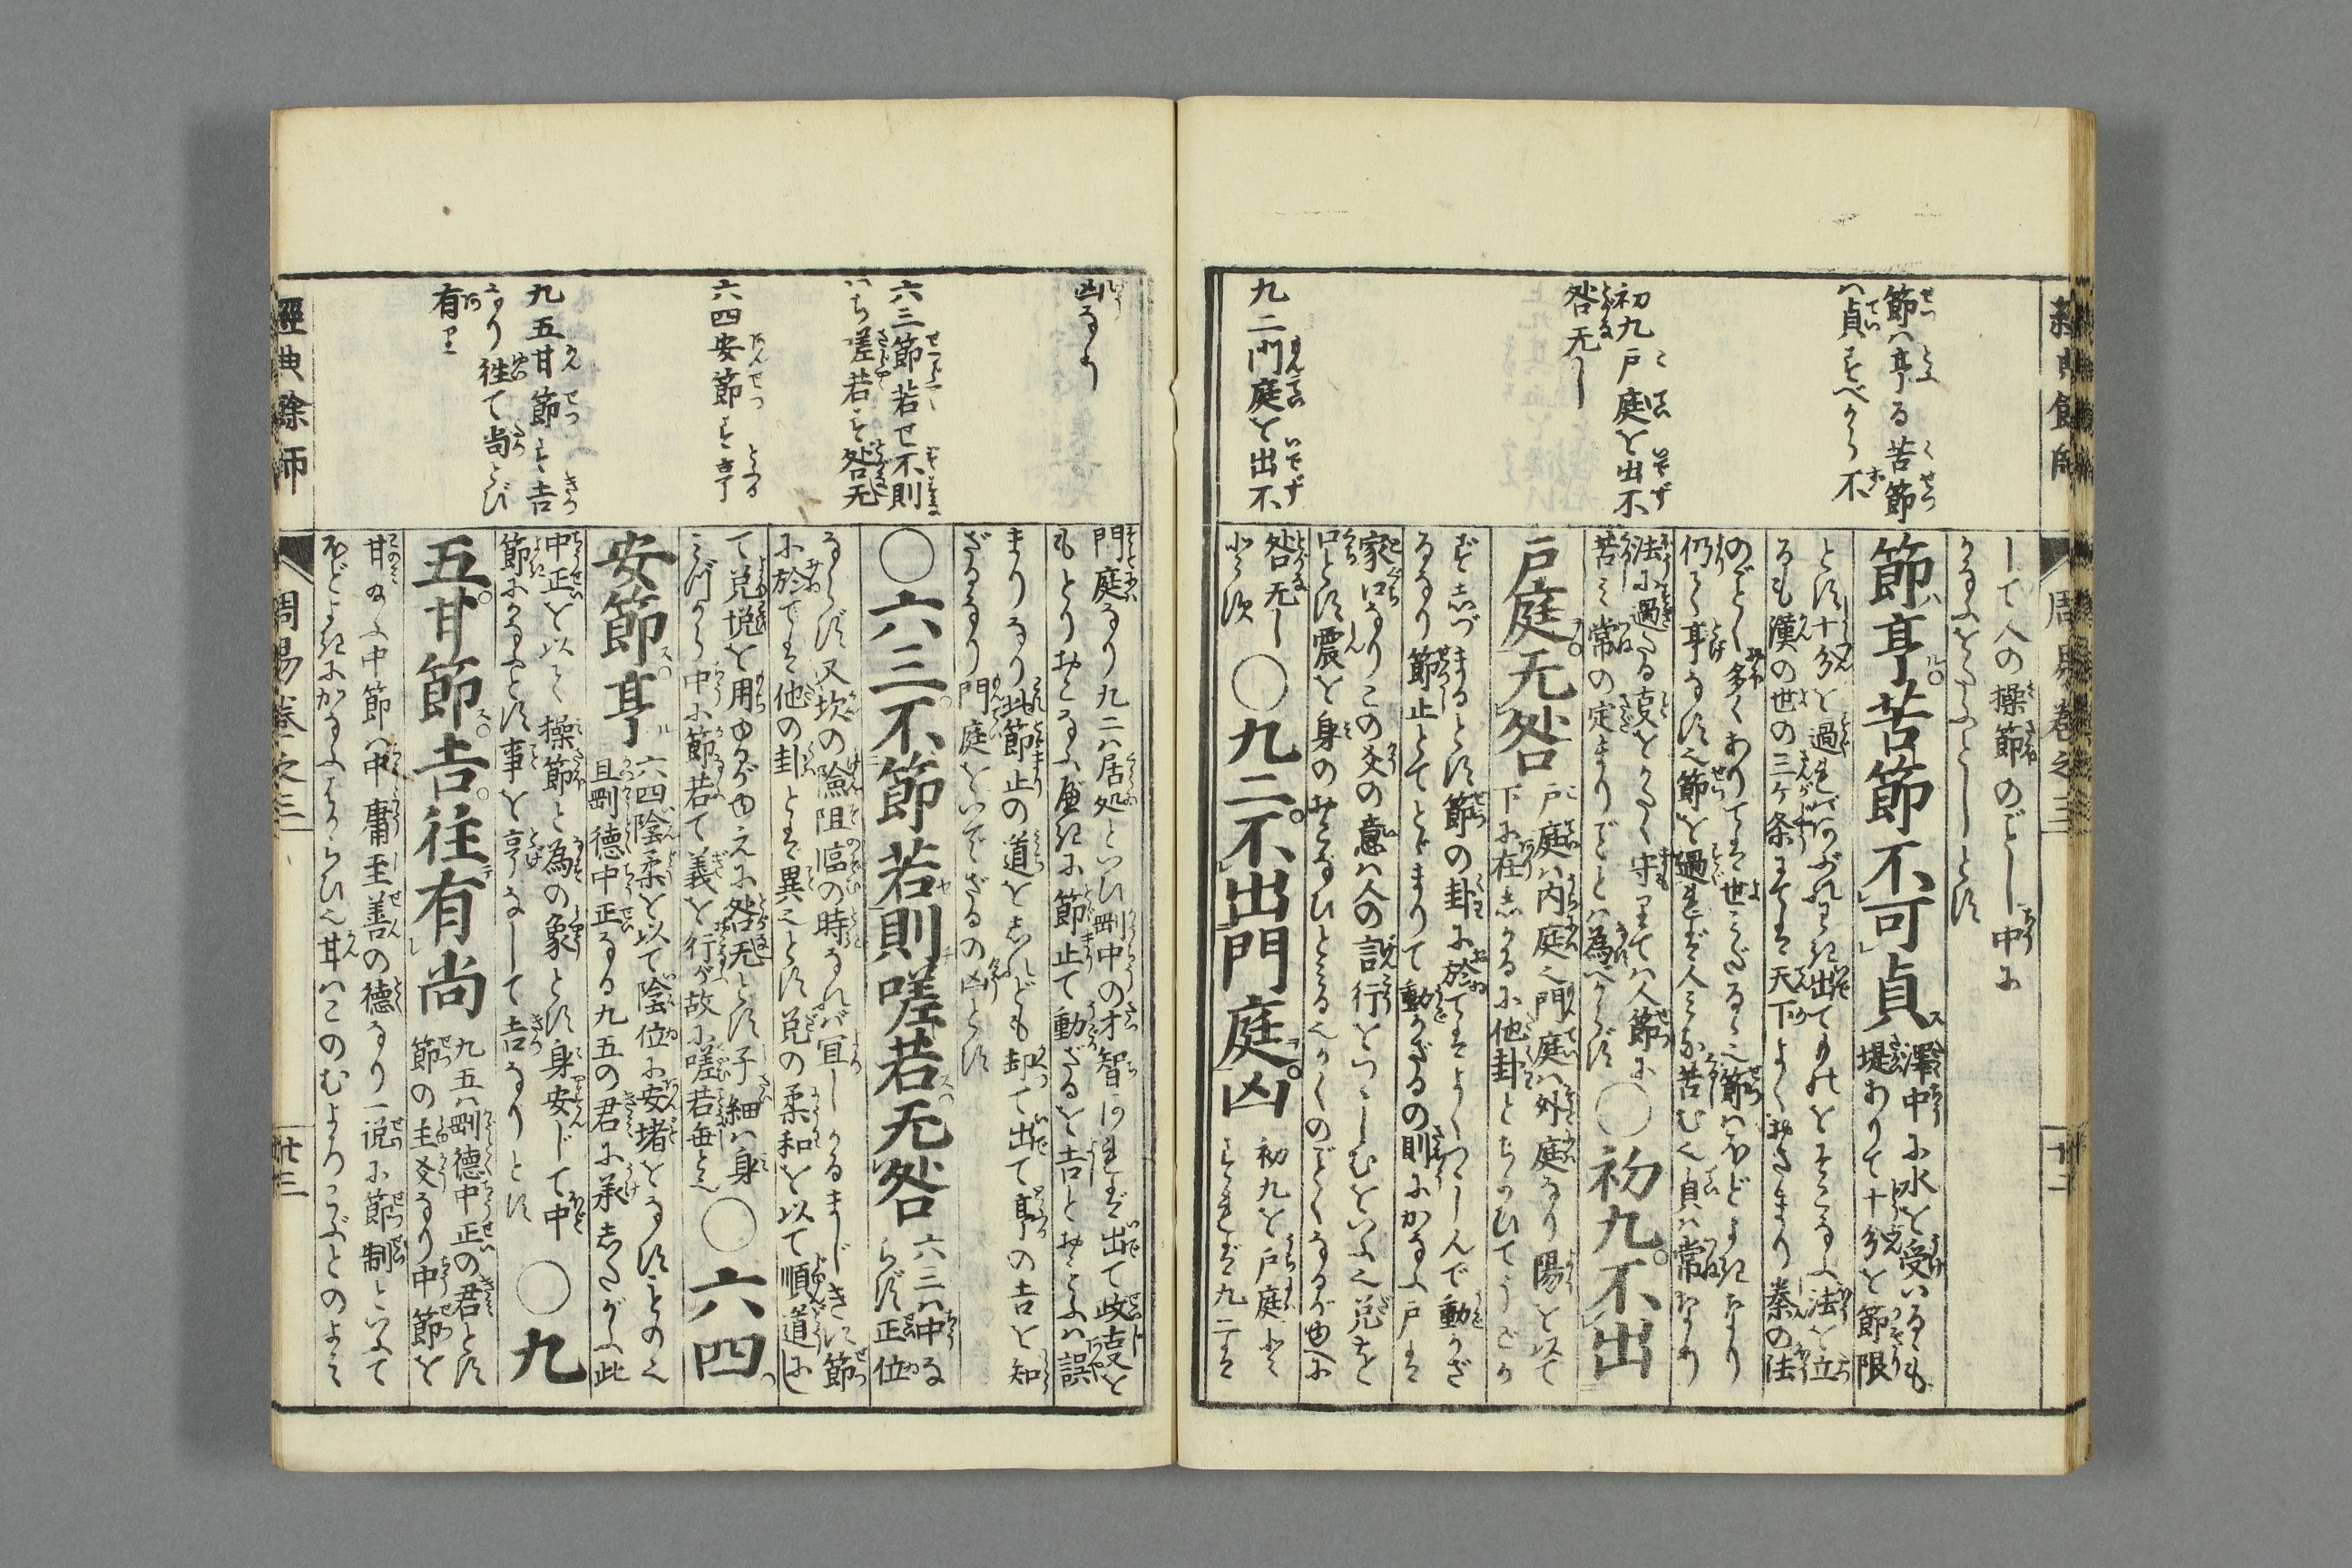 節ハ亨る苦節
ハ貞すべから不
初九戸庭を出不
咎无し
九二門庭を出不
して人の操節のごとし中に
かなふをたふとしとす
節亨苦節不可貞
澤中に水を受いるゝも
堤ありて十分を節限
とす十分を過
るも漢の世の三ケ条にては天下よくおさまり秦の法
のごとく多くありては世みだるゝ之節ハほどよきなり
仍て亨るなす之節を過れば人みな苦む之貞ハ常なり
法に過たる叓をかたく守りてハ人節に
苦み常の定まりごとハ為べからず
○初九不出
戸庭无咎
戸庭ハ内庭之門庭ハ外庭なり陽を以て
下に在
節の卦に於てはよくつゝしんで動かざ
るなり節止とてとゞまりて動かざるの則にかなふ戸は
家口なりこの爻の意ハ人の言行をつゝしむをいふ之兌を
口とす震を身のおこなひとみる之かくのごとくなるが由に
咎无し
○九二不出門庭凶
初九を戸庭とみ
すれば九二は
經典餘師
周易卷之三
廿二
凶なり
六三節若せ不則
ハち嗟若す咎无
六四安節す亨
九五甘節す吉
なり往て尚とび
有り
門庭なり九二ハ居処といひ剛中の才智あれば出て政叓を
もとりおこなふべきに節止て動ざるを吉とおもふハ誤
まりなり此節止の道をしれども却て出て亨の吉を知
ざるなり門庭をいでざるの凶とす
○六三不節若則嗟若无咎
六三ハ中な
らず正位
ならず又坎の險阻臨の時なれバ宜しかるまじきに節
に於ては他の卦とは異之とす兌の柔和を以て順道にし
て兌説を用ゆるがゆえに咎无とす子細ハ身
みづから中に節若て義を行が故に嗟若毎と之
○六四
安節亨
六四陰柔を以て陰位に安堵をなすもの之
且剛德中正なる九五の君に承したがふ此
中正を以て操節と為の象とす身安じて中
節にかなふとす事を亨なして吉なりとす
○九
五甘節吉往有尚
九五ハ剛德中正の君とす
節の主爻なり中節を
甘のふ中節ハ中庸至善の德なり一説に節制といふて
ほどよきにかなふはからひ之甘ハこのむよろこぶとのよみ
經典餘師
周易卷之三
廿三